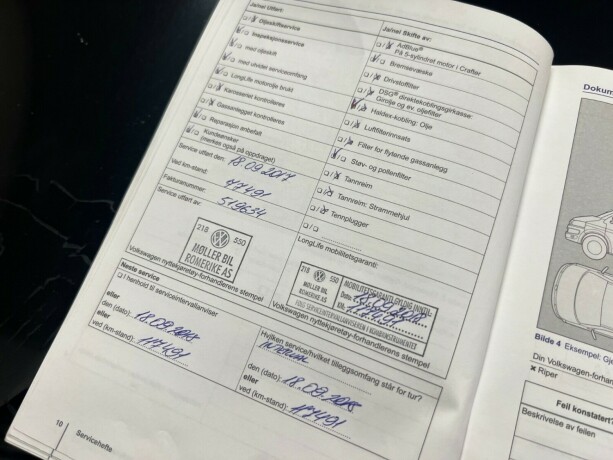 Ja/nei Utført:
Oljeskiftservice
Inspeksjonsservice
med oljeskift
med utvidet serviceomfang
LongLife motorolje brukt
Karosseriet kontrolleres
Gassanlegget kontrolleres
Reparasjon anbefalt
Kundeønsker
(merkes også på oppdraget)
Service utført den: 18.09.2017
Ved km-stand: 77491
Fakturanummer: 519634
Service utført av:
218 550
MØLLER BIL
ROMERIKE AS
Volkswagen nyttekjøretøy-forhandlerens stempel
Ja/nei Skifte av:
AdBlue®
På 5-sylindret motor i Crafter
Bremsevæske
Drivstoffilter
DSG® direktekoblingsgirkasse:
Girolje og ev. oljefilter
Haldex-kobling: Olje
Luftfilterinnsats
Filter for flytende gassanlegg
Støv- og pollenfilter
Tannreim
Tannreim: Strammehjul
Tennplugger
LongLife mobilitetsgaranti:
218 550
MØLLER BIL
ROMERIKE AS
Volkswagen nyttekjøretøy-forhandlerens stempel
Neste service
I henhold til serviceintervallanviser
eller
den (dato): 18.09.2018
eller
ved (km-stand): 117491
Hvilken service/hvilket tilleggsomfang står for tur?
den (dato): 18.09.2018
eller
ved (km-stand): 117491
10
Servicehefte
Dokum
Bilde 4 Eksempel: Gje
Din Volkswagen-forhan
× Riper
Feil konstatert?
Beskrivelse av feilen